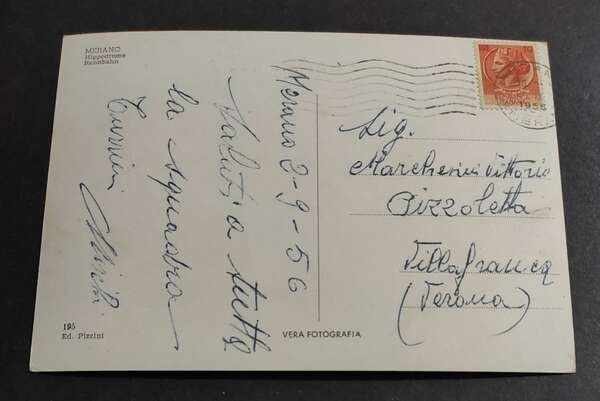 MERANO
Hippodrome
Rennbahn
Merano 2-9-56
Saluti a tutta
la squadra
Sig.
Marchesini Vittorio
Pizzoletta
Villafranca
(Verona)
195
Ed. Pizzini
VERA FOTOGRAFIA